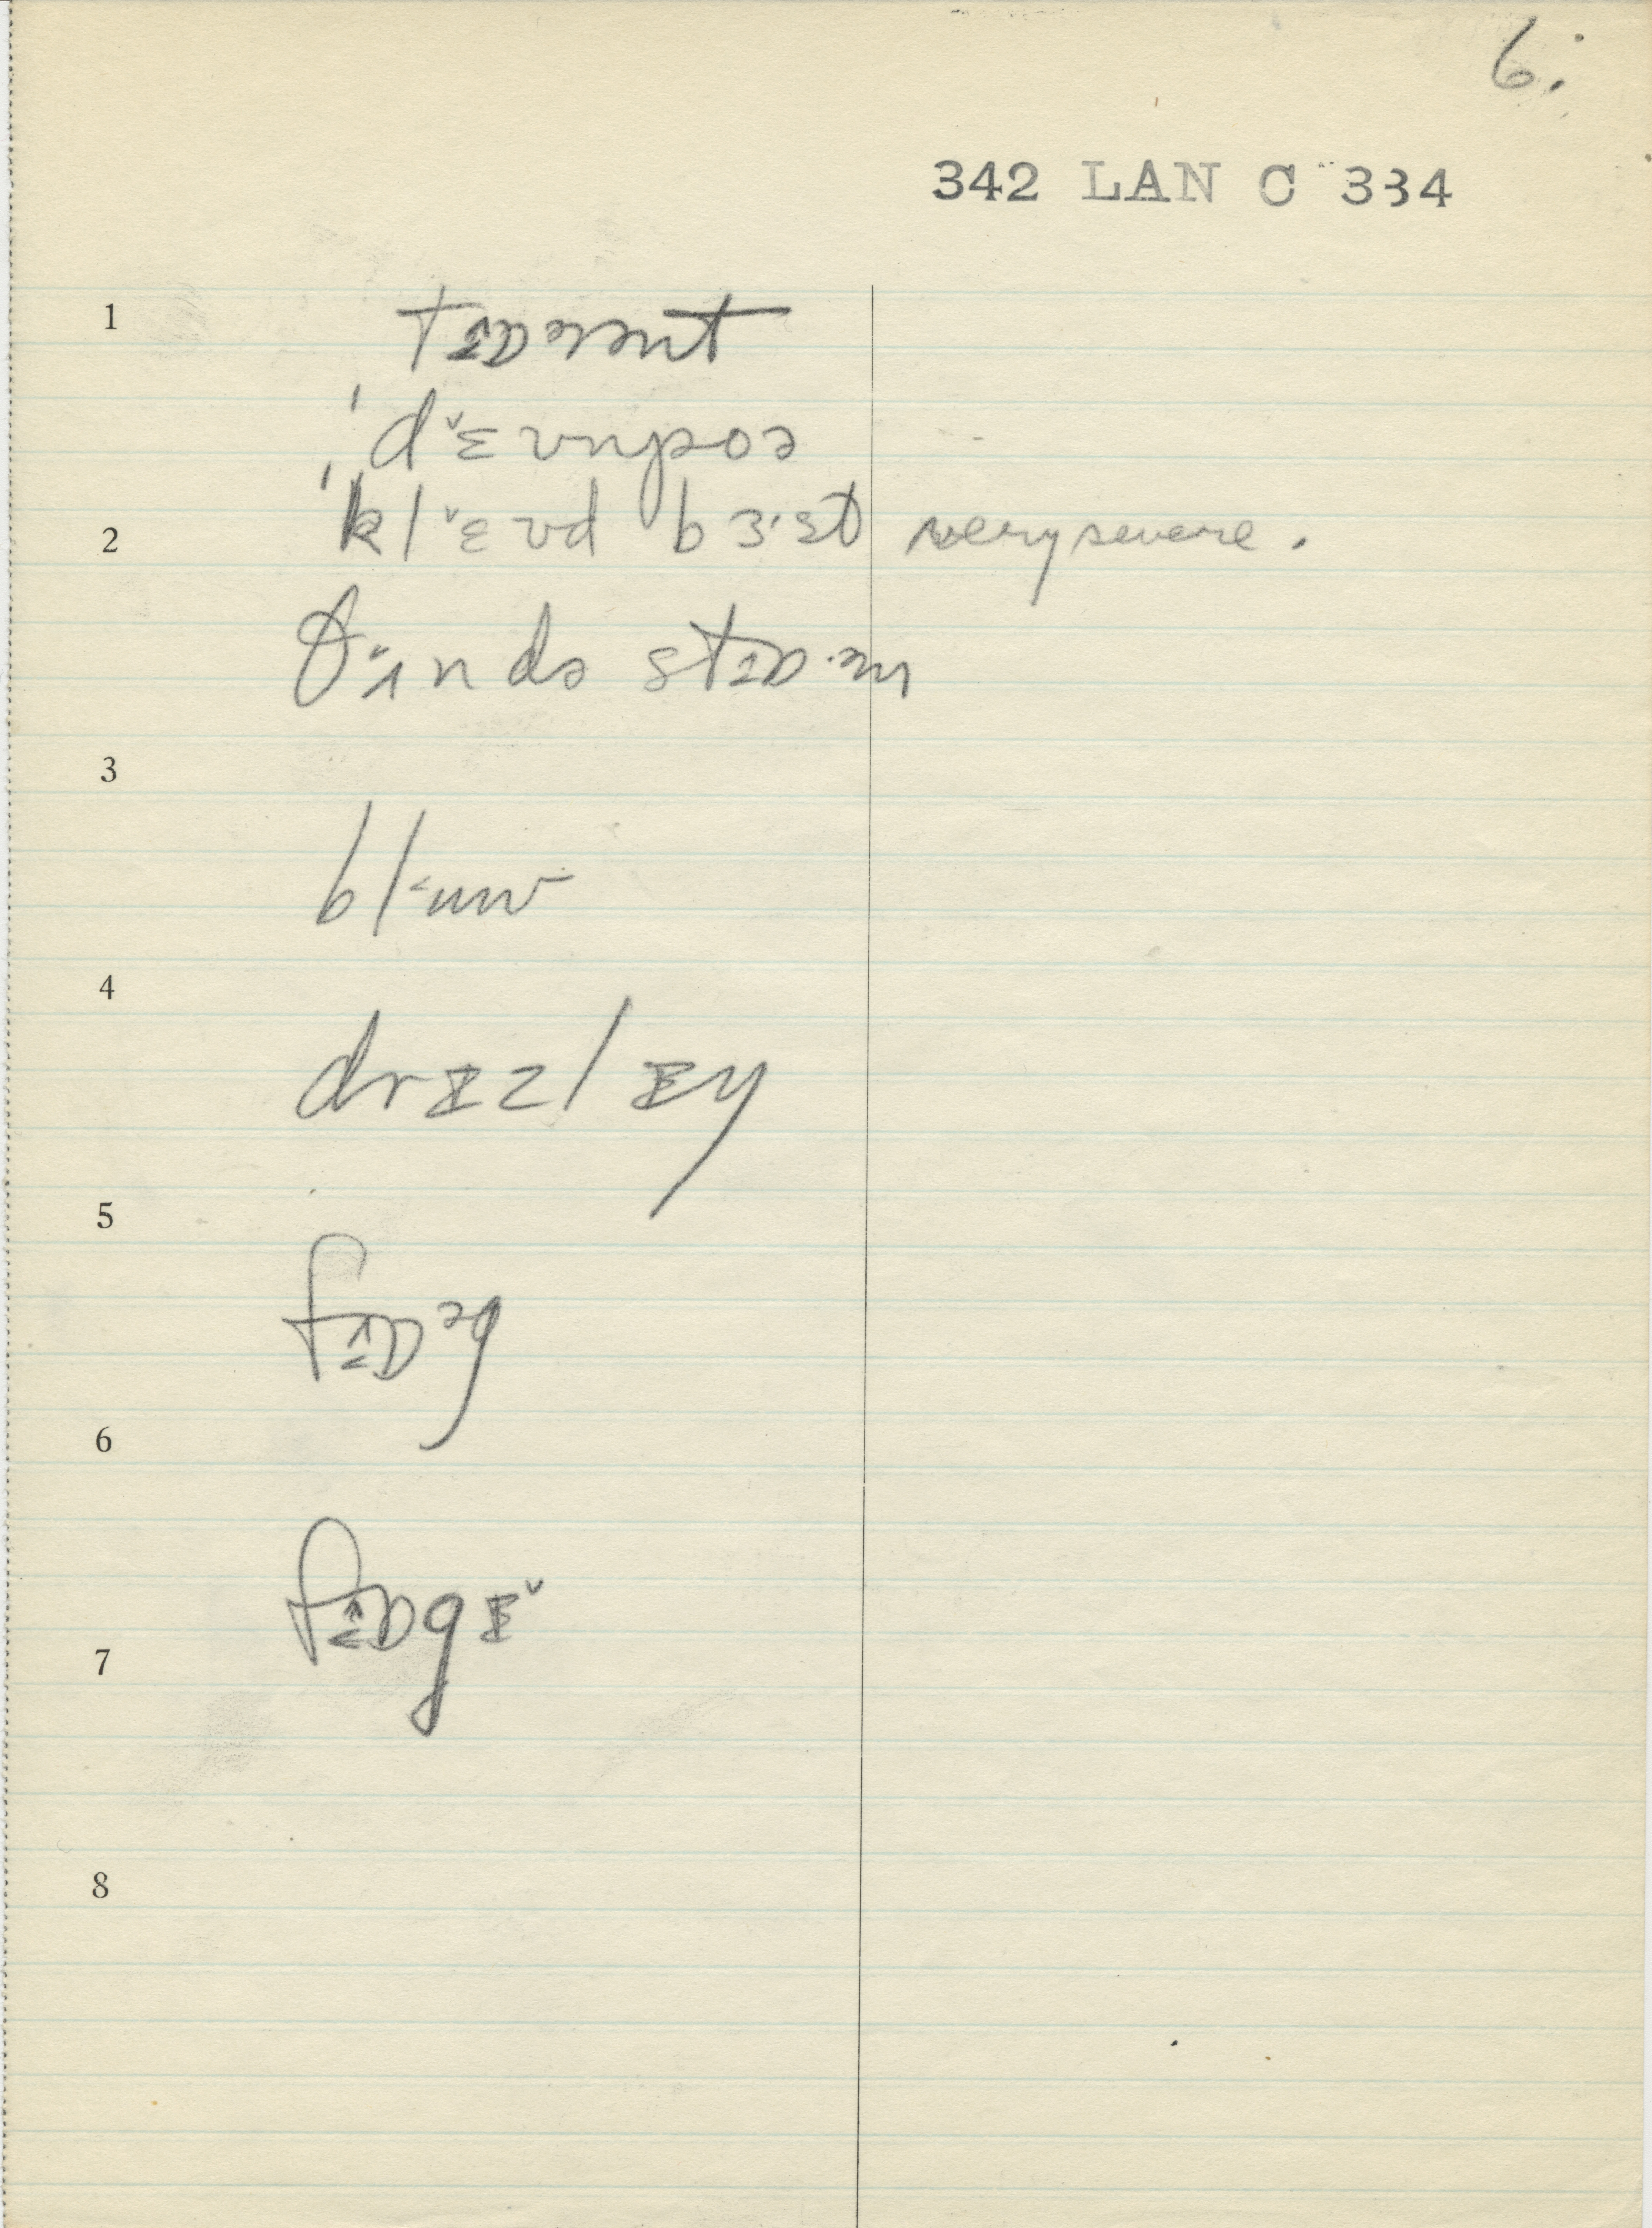 6.
342 LAN C 334
1
tɒərənt
ˈdɛʊnpoə
2 ˈklɛʊd bɜ·st very severe.
θʌndə stɒ·əm
3
blʌuw
4
drɪzlɪy
5
fɒəg
6
fɒgɪ
7
8